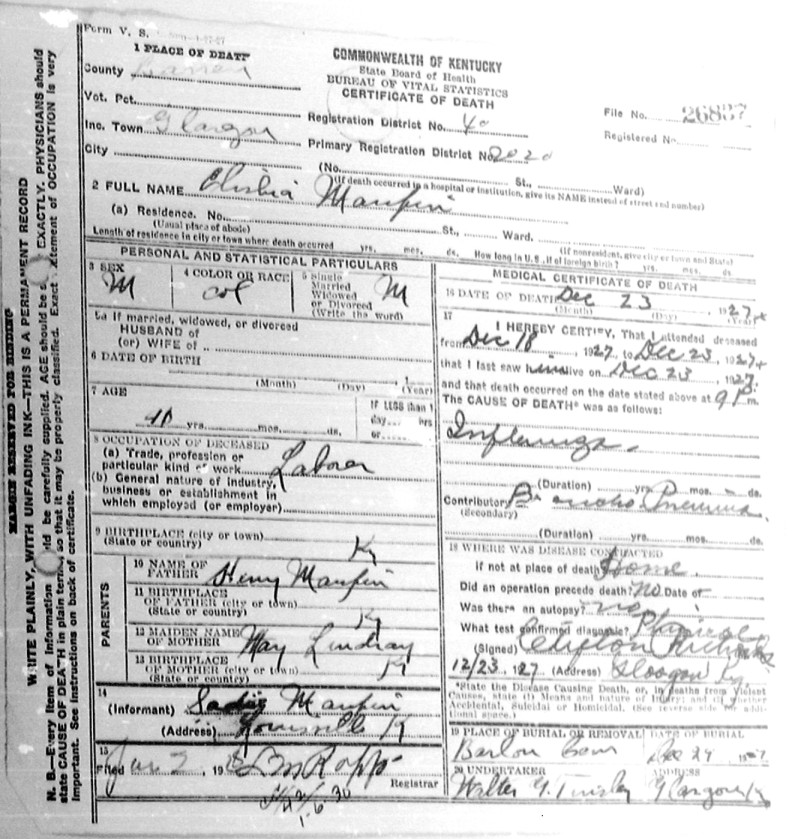 Form V. S.
1 PLACE OF DEATH
COMMONWEALTH OF KENTUCKY
State Board of Health
BUREAU OF VITAL STATISTICS
CERTIFICATE OF DEATH
County Barren
Vot. Pct.
Registration District No. 40
File No. 26837
Registered No
Inc. Town Glasgow
Primary Registration District No 2020
City
(No. St., Ward)
(If death occurred in a hospital or institution, give its NAME instead of street and number)
2 FULL NAME Maupin
(a) Residence. No. St., Ward.
(Usual place of abode) (If nonresident, give city or town and State)
Length of residence in city or town where death occurred yrs. mos. ds. How long in U. S., if of foreign birth? yrs. mos. ds.
PERSONAL AND STATISTICAL PARTICULARS
3 SEX
M
4 COLOR OR RACE
Col
5 Single
Married
Widowed
or Divorced
(Write the word)
M
5a If married, widowed, or divorced
HUSBAND of
(or) WIFE of
6 DATE OF BIRTH
(Month) (Day) (Year)
7 AGE
yrs. mos. ds.
IF LESS than 1
day hrs
or
8 OCCUPATION OF DECEASED
(a) Trade, profession or
particular kind of work Laborer
(b) General nature of industry,
business or establishment in
which employed (or employer)
9 BIRTHPLACE (city or town)
(State or country) Ky
PARENTS
10 NAME OF
FATHER Henry Maupin
11 BIRTHPLACE
OF FATHER (city or town)
(State or country) Ky
12 MAIDEN NAME
OF MOTHER May Lindsay
13 BIRTHPLACE
OF MOTHER (city or town)
(State or country) Ky
14
(Informant) Sadie Maupin
(Address) Louisville Ky
15
Filed Jan 2 19
Registrar
1-6-30
MEDICAL CERTIFICATE OF DEATH
16 DATE OF DEATH Dec 23, 1927
(Month) (Day) (Year)
17
I HEREBY CERTIFY, That I attended deceased
from Dec 18, 1927, to Dec 23, 1927
that I last saw him alive on Dec 23, 1927
and that death occurred on the date stated above at 9 P m.
The CAUSE OF DEATH* was as follows:
Influenza.
(Duration) yrs. mos. ds.
Contributory Broncho Pneumonia
(Secondary)
(Duration) yrs. mos. ds.
18 WHERE WAS DISEASE CONTRACTED
If not at place of death? Home.
Did an operation precede death? No Date of
Was there an autopsy? no
What test confirmed diagnosis? Physical
(Signed) Clifton
12/23, 127 (Address) Glasgow Ky
*State the Disease Causing Death, or, in deaths from Violent
Causes, state (1) Means and nature of Injury; and (2) whether
Accidental, Suicidal or Homicidal. (See reverse side for addi-
tional space.)
19 PLACE OF BURIAL OR REMOVAL DATE OF BURIAL
Dec 24 1927
20 UNDERTAKER ADDRESS
Walter Glasgow Ky
MARGIN RESERVED FOR BINDING
WRITE PLAINLY, WITH UNFADING INK—THIS IS A PERMANENT RECORD
N. B.—Every item of Information should be carefully supplied. AGE should be EXACTLY. PHYSICIANS should
state CAUSE OF DEATH in plain terms, so that it may be properly classified. Exact statement of OCCUPATION is very
Important. See instructions on back of certificate.